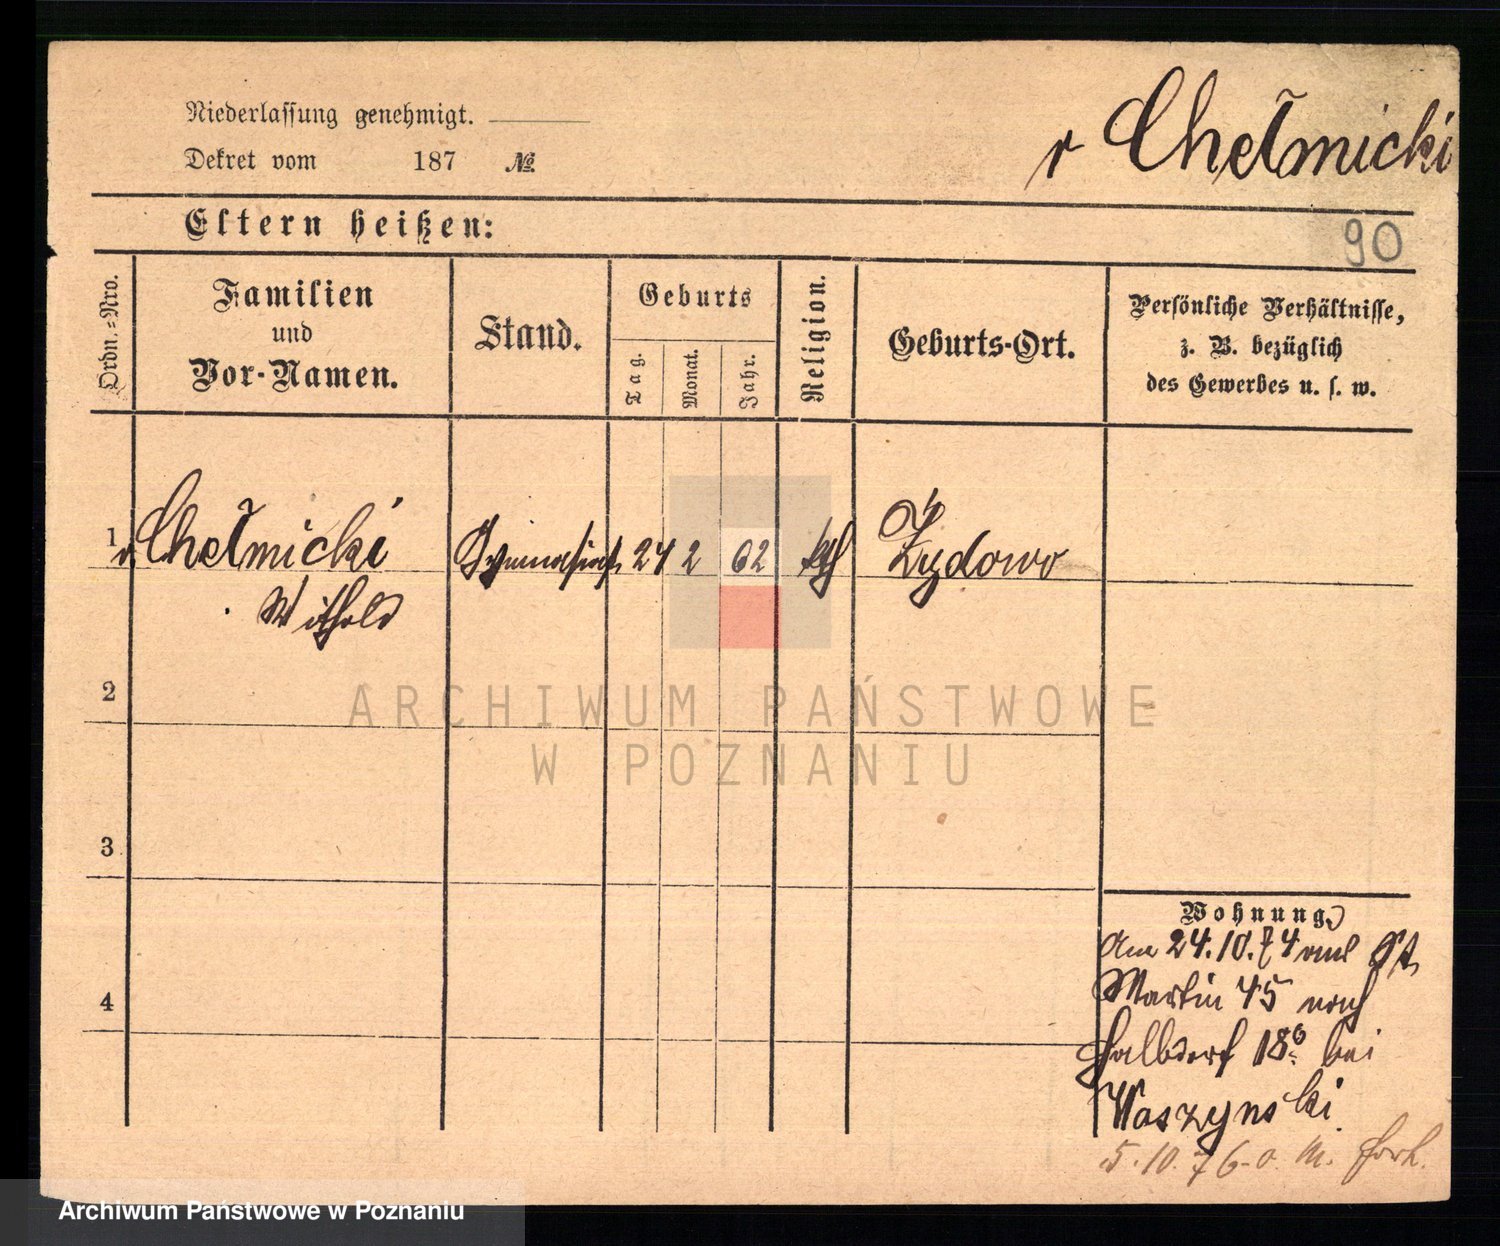 Niederlassung genehmigt.
Dekret vom 187 №.
v Chełmicki
Eltern heißen:
90
Ordn.-Nro.
Familien
und
Vor-Namen.
Stand.
Geburts
Tag.
Monat.
Jahr.
Religion.
Geburts-Ort.
Persönliche Verhältnisse,
z. B. bezüglich
des Gewerbes u. s. w.
1 v. Chełmicki Gymnasiast 24 2 62 kth Żydowo
Withold
2
ARCHIWUM PAŃSTWOWE
W POZNANIU
3
4
Wohnung.
Am 24.10.74 von St.
Martin 45 nach
Halbdorf 18 bei
Waszynski.
5.10.76. o. M. fort.
Archiwum Państwowe w Poznaniu